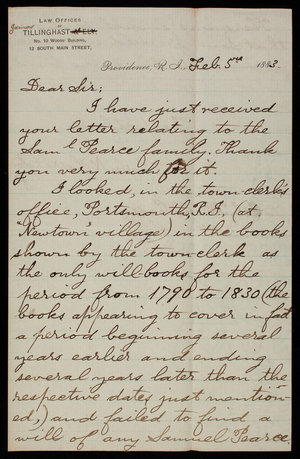 LAW OFFICES
James
TILLINGHAST & ELY.
No. 10 Weybosset Building,
12 SOUTH MAIN STREET,
Providence, R. I., Feb. 5th 1883
Dear Sir;
I have just received
your letter relating to the
Saml Pearce family. Thank
you very much for it.
I looked, in the town clerk's
office, Portsmouth, R.I., (at
"Newtown" village) in the books
shown by the town clerk as
the only will books for the
period from 1790 to 1830 (the
books appearing to cover in fact
a period beginning several
years earlier and ending
several years later than the
respective dates just mention-
ed,) and failed to find a
will of any Samuel Pearce